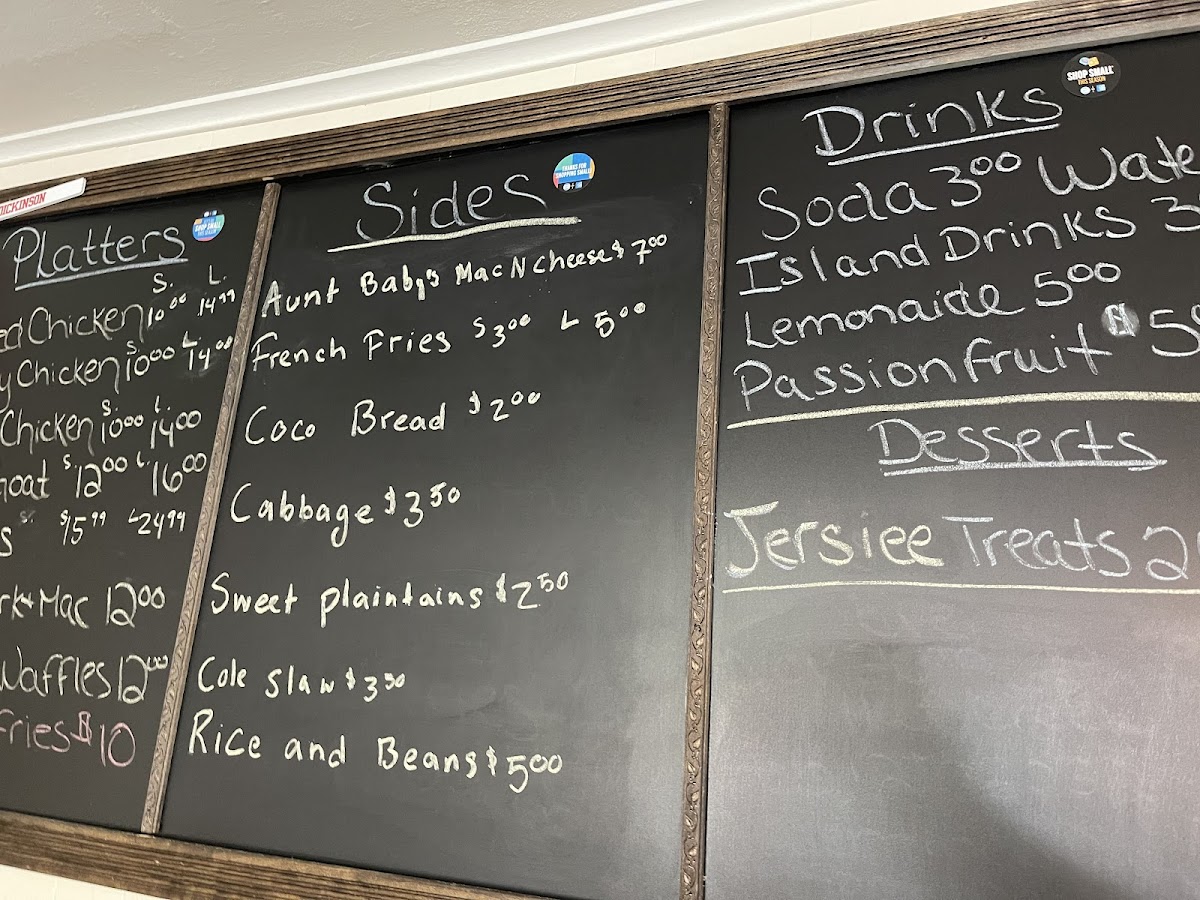 DICKINSON
Platters
S. L.
Chicken 10 00 14 99
y Chicken S. 10 00 L. 14 00
Chicken S. 10 00 L. 14 00
oat S. 12 00 L. 16 00
s $15 99 L 24 99
rk + Mac 12 00
Waffles 12 00
Fries $10
SHOP SMALL
Sides
THANKS FOR
SHOPPING SMALL
Aunt Baby's Mac N Cheese $7 00
French Fries S 3 00 L 5 00
Coco Bread $2 00
Cabbage $3 50
Sweet plaintains $2 50
Cole Slaw $3 50
Rice and Beans $5 00
SHOP SMALL
THIS SEASON
Drinks
Soda 3 00 Wate
Island Drinks 3
Lemonaide 5 00
Passionfruit 5
Desserts
Jersiee Treats 2